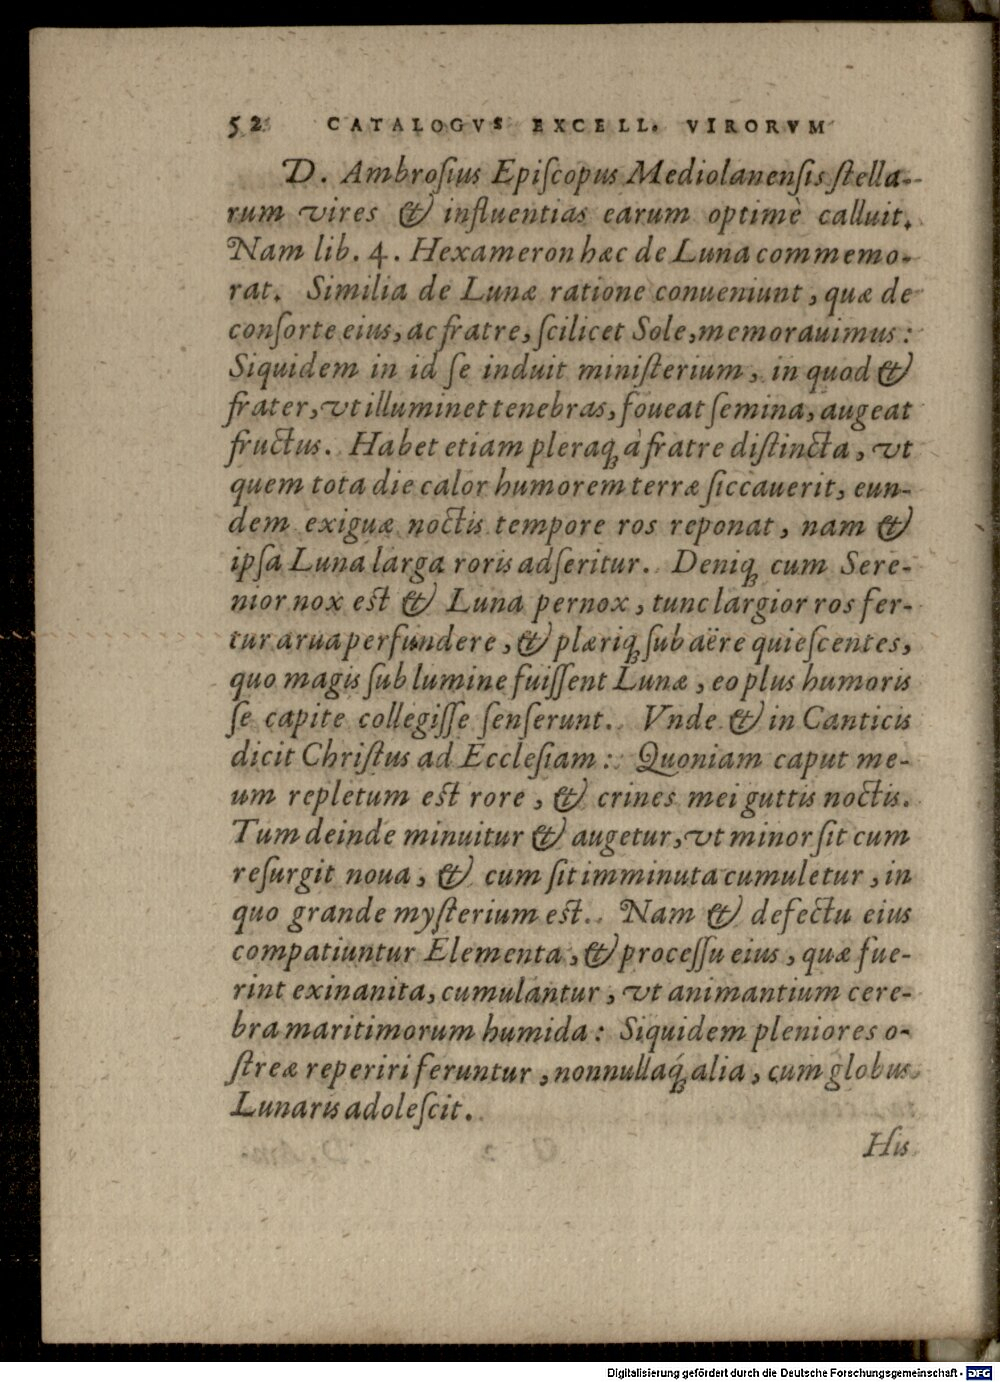 52 CATALOGVS EXCELL. VIRORVM
D. Ambroſius Epiſcopus Mediolanenſis ſtella-
rum vires & influentias earum optimè calluit.
Nam lib. 4. Hexameron hæc de Luna commemo-
rat. Similia de Lunæ ratione conueniunt, quæ de
conſorte eius, ac fratre, ſcilicet Sole, memorauimus:
Siquidem in id ſe induit miniſterium, in quod &
frater, vt illuminet tenebras, foueat ſemina, augeat
fructus. Habet etiam pleraq; à fratre diſtincta, vt
quem tota die calor humorem terræ ſiccauerit, eun-
dem exiguæ noctis tempore ros reponat, nam &
ipſa Luna larga roris adſeritur. Deniq; cum Sere-
nior nox eſt & Luna pernox, tunc largior ros fer-
tur arua perfundere, & plæriq; ſub aëre quieſcentes,
quo magis ſub lumine fuiſſent Lunæ, eo plus humoris
ſe capite collegiſſe ſenſerunt. Vnde & in Canticis
dicit Chriſtus ad Eccleſiam: Quoniam caput me-
um repletum eſt rore, & crines mei guttis noctis.
Tum deinde minuitur & augetur, vt minor ſit cum
reſurgit noua, & cum ſit imminuta cumuletur, in
quo grande myſterium eſt. Nam & defectu eius
compatiuntur Elementa, & proceſſu eius, quæ fue-
rint exinanita, cumulantur, vt animantium cere-
bra maritimorum humida: Siquidem pleniores o-
ſtreæ reperiri feruntur, nonnullaq́; alia, cum globus
Lunaris adoleſcit.
His
Digitalisierung gefördert durch die Deutsche Forschungsgemeinschaft - DFG